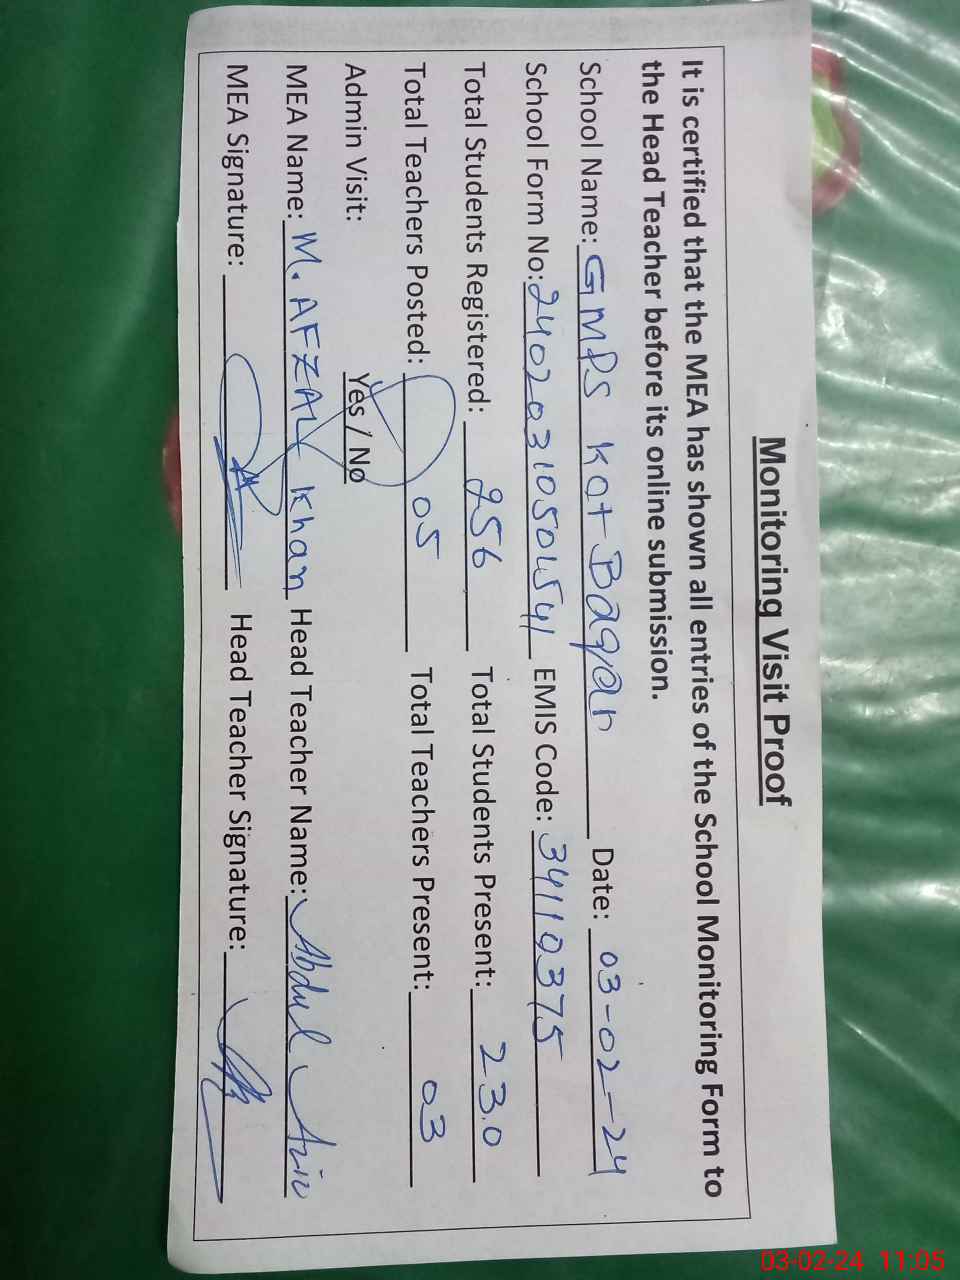 Monitoring Visit Proof
It is certified that the MEA has shown all entries of the School Monitoring Form to
the Head Teacher before its online submission.
School Name: GMPS Kot Baqar Date: 03-02-24
School Form No: 24020310504541 EMIS Code: 34110375
Total Students Registered: 256 Total Students Present: 230
Total Teachers Posted: 05 Total Teachers Present: 03
Admin Visit: Yes / No
MEA Name: M. AFZAL Khan Head Teacher Name: Abdul Aziz
MEA Signature: Head Teacher Signature:
03-02-24 11:05